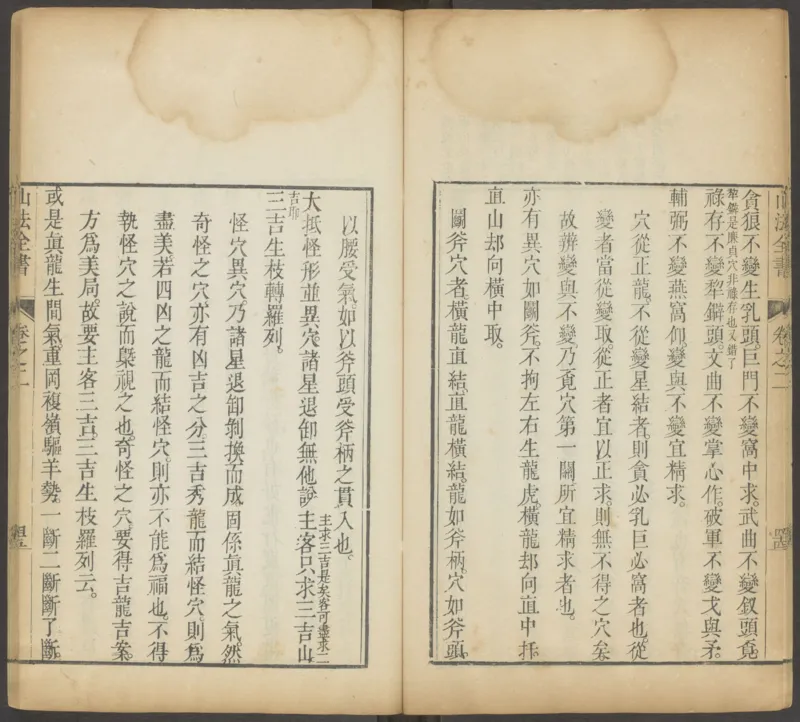 貪狼不變生乳頭。巨門不變窩中求。武曲不變釵頭覓。
犂鐴是廉貞穴非祿存也又錯了
祿存不變犂鐴頭。文曲不變掌心作。破軍不變戈與矛。
輔弼不變燕窩仰。變與不變宜精求。
穴從正龍。不從變星結者。則貪必乳巨必窩者也。從
變者當從變取。從正者宜以正求。則無不得之穴矣。
故辨變與不變。乃覓穴第一關所宜精求者也。
亦有異穴如關斧。不拘左右生龍虎橫龍却向直中扦。
直山却向橫中取。
關斧穴者。橫龍直結。直龍橫結。龍如斧柄。穴如斧頭。
卷之二
山法全書
以腰受氣。如以斧頭受斧柄之貫入也。
大抵怪形並異穴。諸星退卸無他說。主客只求三吉山。
主求三吉是矣客可盡求三
吉耶
三吉生枝轉羅列。
怪穴異穴。乃諸星退卸剝換而成。固係真龍之氣。然
奇怪之穴。亦有凶吉之分。三吉秀龍而結怪穴。則為
盡美。若四凶之龍而結怪穴。則亦不能為福也。不得
執怪穴之說而槩視之也。奇怪之穴。要得吉龍吉案。
方為美局。故要主客三吉。三吉生枝羅列云。
或是真龍生間氣。重岡複嶺驅羊勢。一斷二斷斷了斷。
山法全書
卷之二